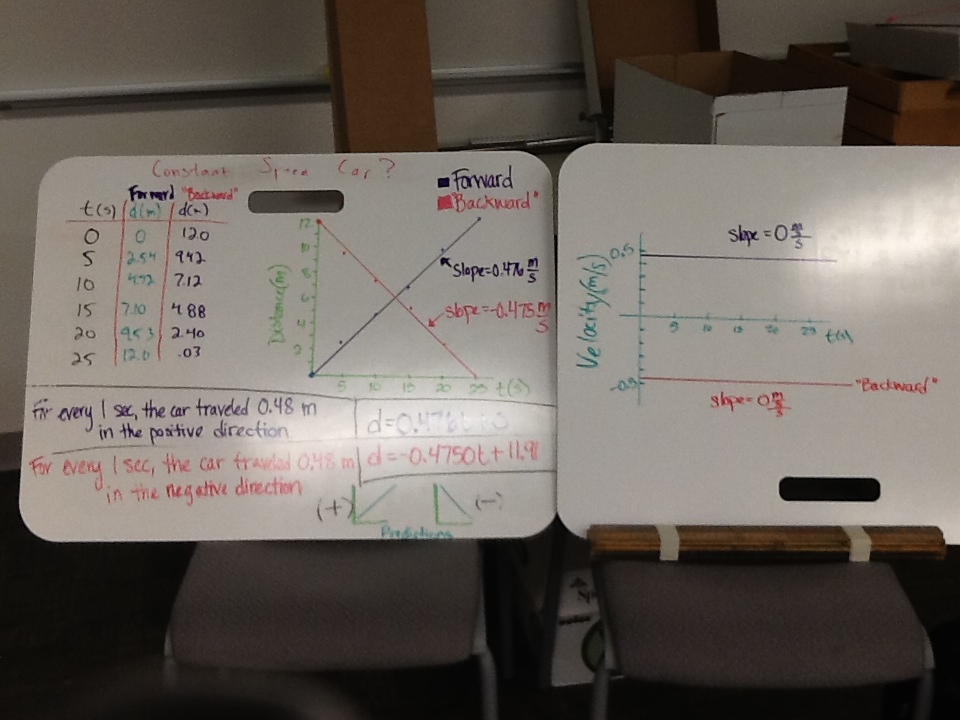 Constant Speed Car?
Forward "Backward"
t(s) d(m) d(m)
0 0 12.0
5 2.54 9.42
10 4.92 7.12
15 7.10 4.88
20 9.53 2.40
25 12.0 .03
Forward
"Backward"
Distance(m)
12
2
5 10 15 20 25 t(s)
Slope=0.476 m/s
slope=-0.475 m/s
For every 1 sec, the car traveled 0.48 m
in the positive direction
d=0.476t
For every 1 sec, the car traveled 0.48 m
in the negative direction
d=-0.4750t+11.91
(+)
(-)
Predictions
Velocity(m/s)
0.5
slope=0 m/s
5 10 15 20 25 t(s)
-0.5
"Backward"
slope=0 m/s